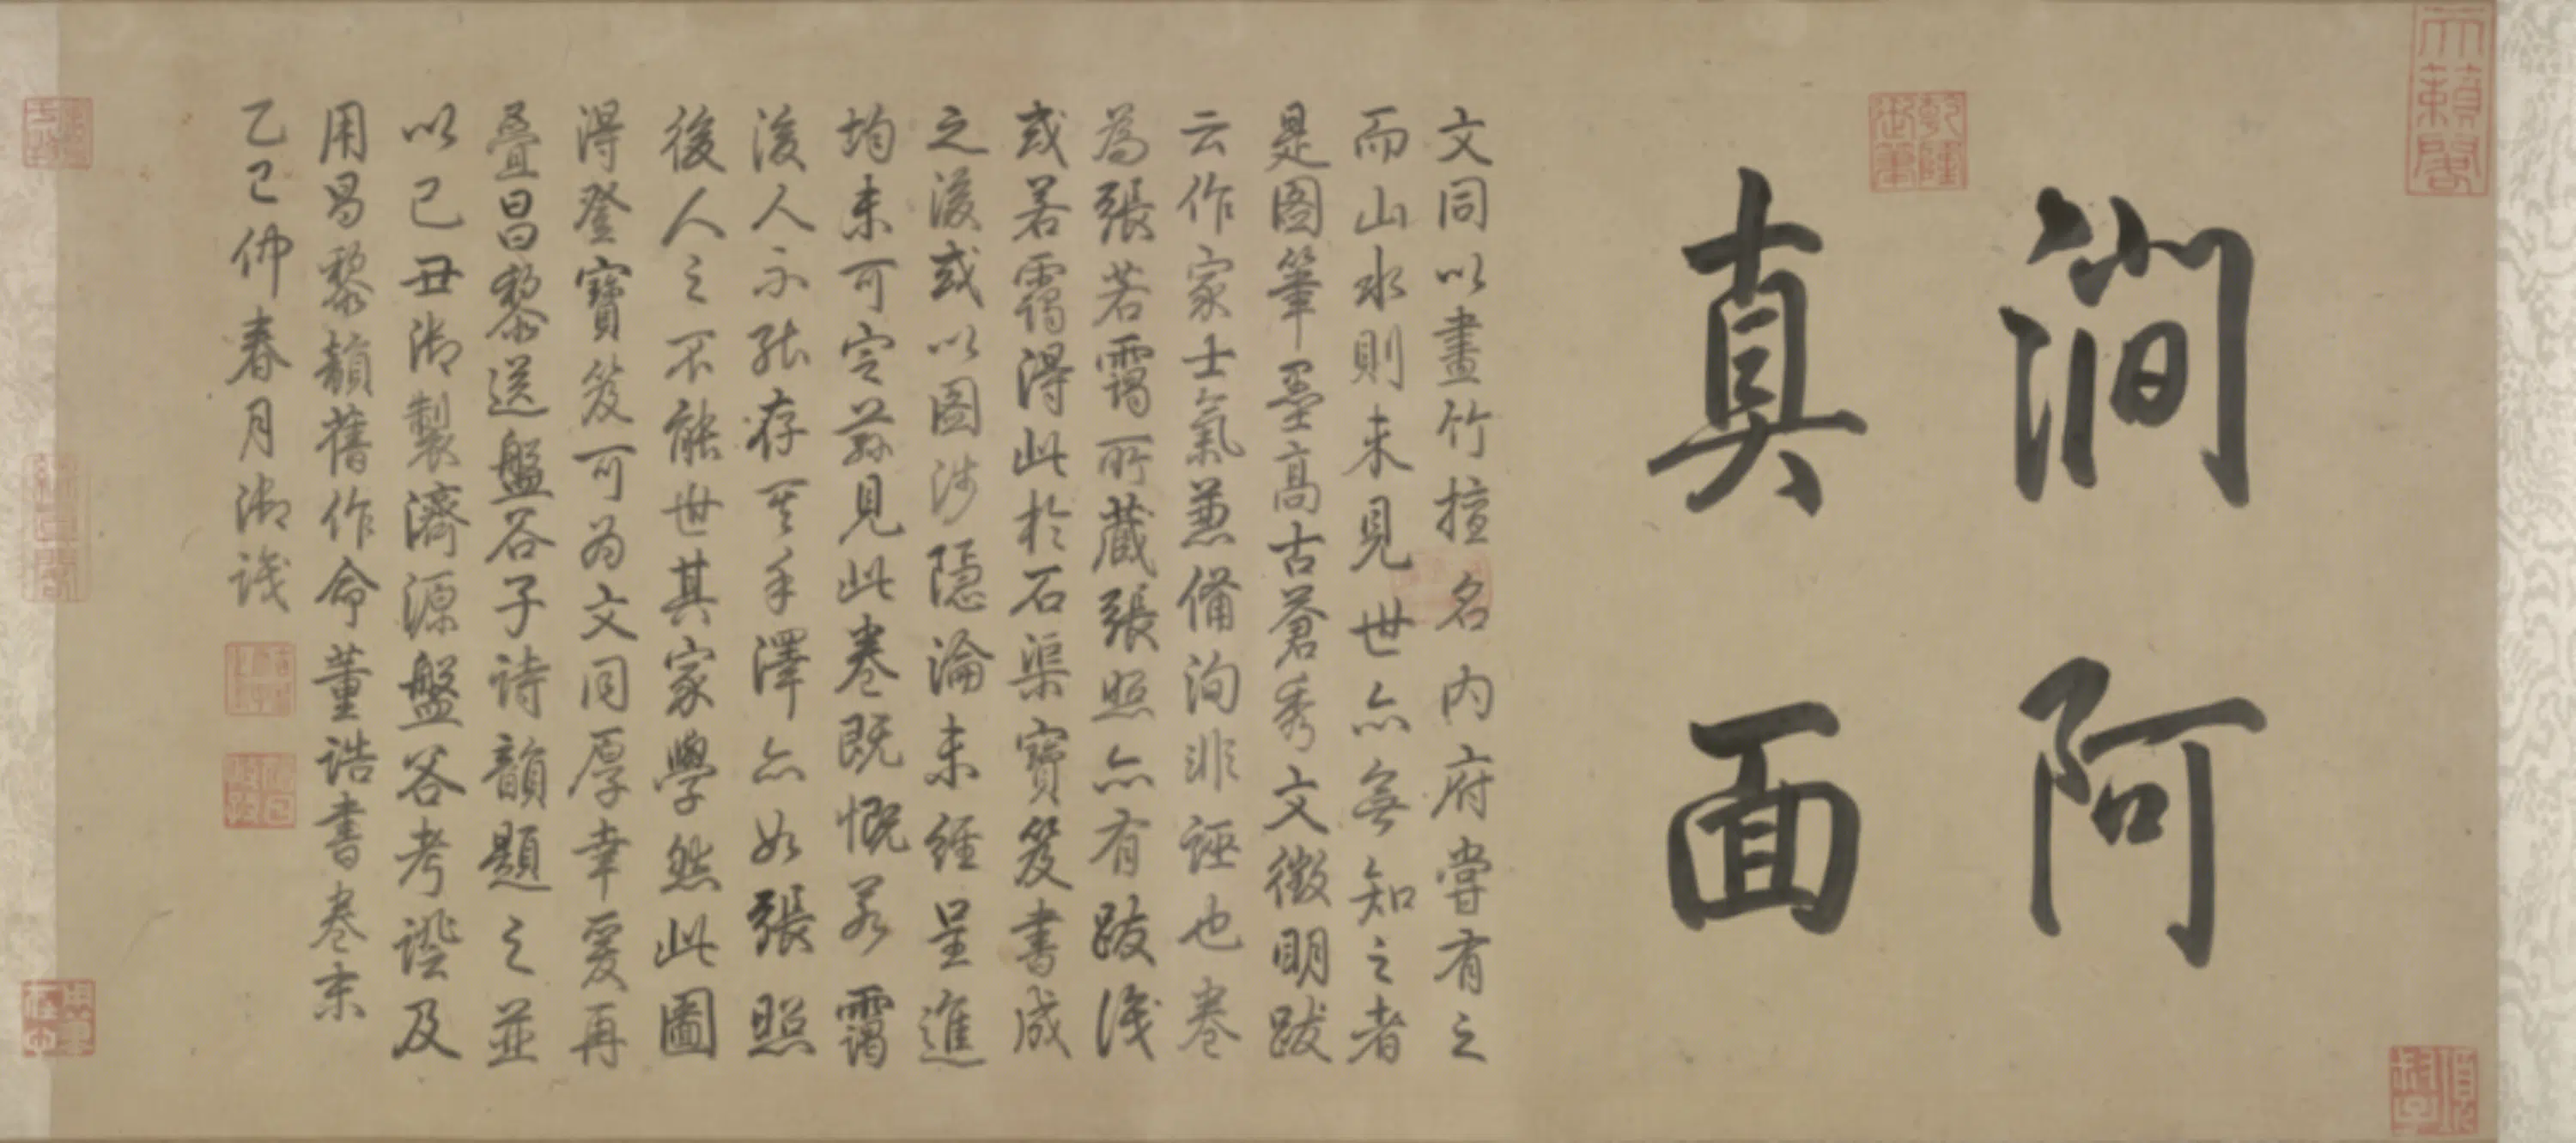 澗阿
真面
文同以畫竹擅名内府嘗有之
而山水則未見世亦無知之者
是圖筆墨高古蒼秀文徵明跋
云作家士氣兼備洵非誣也卷
為張若靄所藏張照亦有跋識
或若靄得此於石渠寶笈書成
之後或以圖涉隱淪未經呈進
均未可定茲見此卷既慨若靄
後人不能存其手澤亦如張照
後人之不能世其家學然此圖
得登寶笈可為文同厚幸爰再
疊昌黎送盤谷子詩韻題之並
以己丑御製濟源盤谷考證及
用昌黎韻舊作命董誥書卷末
乙巳仲春月御識
天籟閣
乾隆御筆